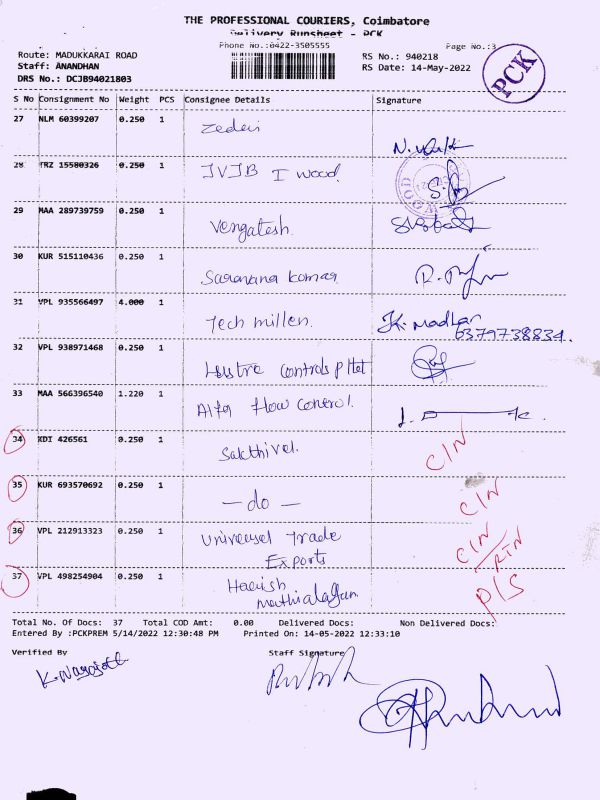 THE PROFESSIONAL COURIERS, Coimbatore
Delivery Runsheet - PCK
Phone No.:0422-3505555
Page No.:3
Route: MADUKKARAI ROAD
Staff: ANANDHAN
DRS No.: DCJB94021803
RS No.: 940218
RS Date: 14-May-2022
PCK
S No Consignment No Weight PCS Consignee Details Signature
27 NLM 60399207 0.250 1
28 TRZ 15580326 0.250 1 JVJB I wood.
29 MAA 289739759 0.250 1 Vengatesh.
30 KUR 515110436 0.250 1 Saravana kumar
31 VPL 935566497 4.000 1 Tech millen. K. Madhar
6379738834.
32 VPL 938971468 0.250 1 controls
33 MAA 566396540 1.220 1 Alfa flow control.
34 KDI 426561 0.250 1 Sakthivel. C/N
35 KUR 693570692 0.250 1 - do - C/N
36 VPL 212913323 0.250 1 Universel Trade C/N/RTN
Exports
37 VPL 498254904 0.250 1 Harish P/S
mathialagan
Total No. Of Docs: 37 Total COD Amt: 0.00 Delivered Docs: Non Delivered Docs:
Entered By :PCKPREM 5/14/2022 12:30:48 PM Printed On: 14-05-2022 12:33:10
Verified By Staff Signature